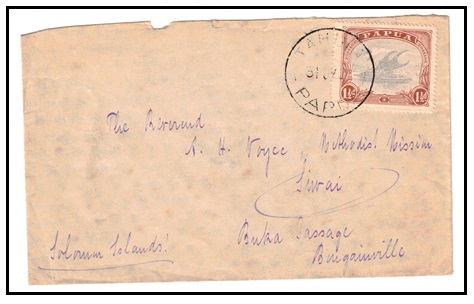 PAPUA
1½d 1½d
The Reverend
A. H. Voyce Methodist Mission
Siwai
Buka Passage
Bougainville
Solomon Islands.